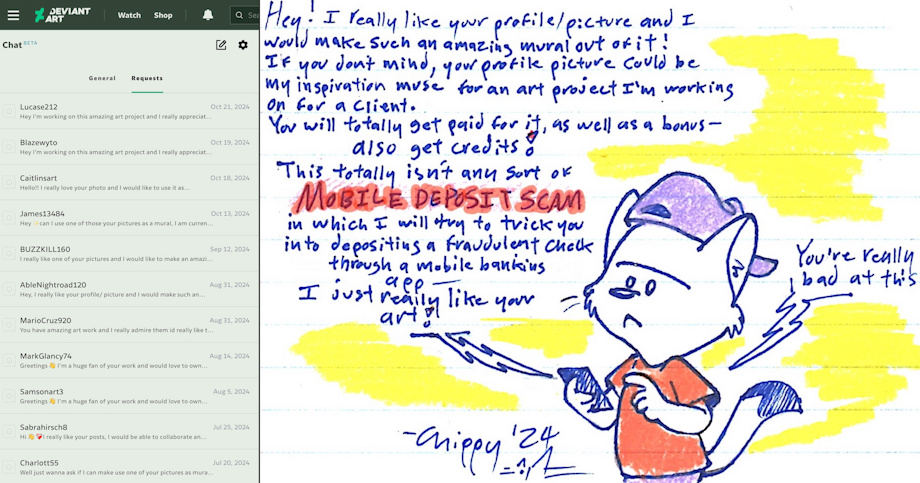 DEVIANT
ART
Watch
Shop
Sea
Chat BETA
General
Requests
Lucase212
Oct 21, 2024
Hey I'm working on this amazing art project and I really appreciat...
Blazewyto
Oct 19, 2024
Hey I'm working on this amazing art project and I really appreciat...
Caitlinsart
Oct 18, 2024
Hello!! I really love your photo and I would like to use it as...
James13484
Oct 13, 2024
Hey ✨can I use one of those your pictures as a mural, I am curren...
BUZZKILL160
Sep 12, 2024
I really like one of your pictures and I would like to make an amazi...
AbleNightroad120
Aug 31, 2024
Hey, I really like your profile/ picture and I would make such an...
MarioCruz920
Aug 31, 2024
You have amazing art work and I really admire them id really like t...
MarkGlancy74
Aug 14, 2024
Greetings 👋 I'm a huge fan of your work and would love to own...
Samsonart3
Aug 5, 2024
Greetings 👋 I'm a huge fan of your work and would love to own...
Sabrahirsch8
Jul 25, 2024
Hi 👋💖I really like your posts, I would be able to collaborate an...
Charlott55
Jul 20, 2024
Well just wanna ask if I can make use one of your pictures as mura...
Hey! I really like your profile/picture and I
would make such an amazing mural out of it!
If you dont mind, your profile picture could be
my inspiration muse for an art project I'm working
on for a client.
You will totally get paid for it, as well as a bonus—
also get credits!
This totally isn't any sort of
MOBILE DEPOSIT SCAM
in which I will try to trick you
into depositing a fraudulent check
through a mobile banking
app —
I just really like your
art!
You're really
bad at this
-Chippy '24